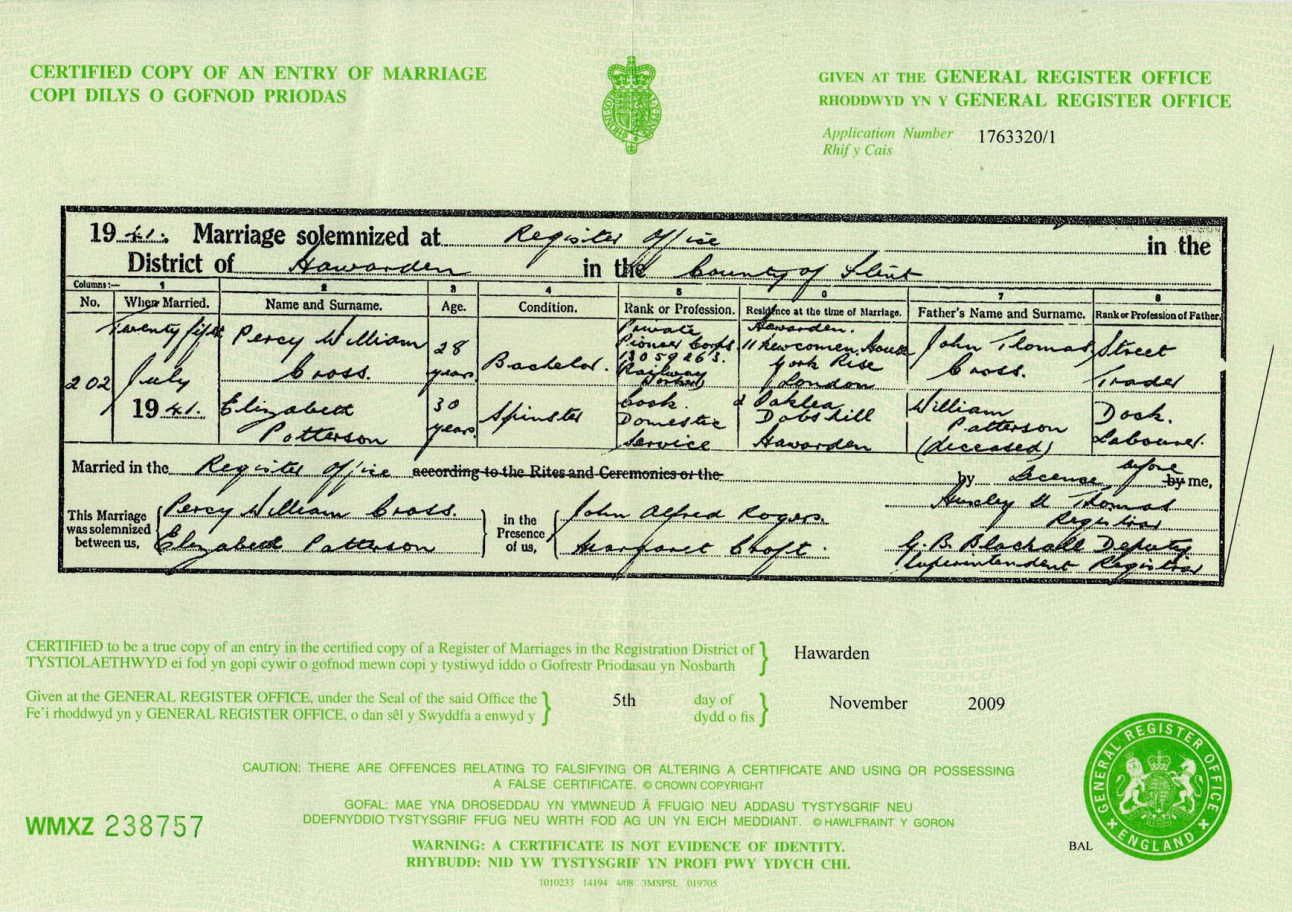 CERTIFIED COPY OF AN ENTRY OF MARRIAGE
COPI DILYS O GOFNOD PRIODAS
GIVEN AT THE GENERAL REGISTER OFFICE
RHODDWYD YN Y GENERAL REGISTER OFFICE
Application Number 1763320/1
Rhif y Cais
1941. Marriage solemnized at Register Office in the
District of Hawarden in the County of Flint
Columns:— 1 2 3 4 5 6 7 8
No. When Married. Name and Surname. Age. Condition. Rank or Profession. Residence at the time of Marriage. Father's Name and Surname. Rank or Profession of Father.
202
Twenty fifth
July
1941.
Percy William
Cross.
28
years
Bachelor.
Private
Pioneer Corps
13059263.
Railway
Hawarden.
11 Newcomen House
York Rise
London
John Thomas
Cross.
Street
Trader
Elizabeth
Patterson
30
years
Spinster
Cook.
Domestic
Service
Oaklea
Dobshill
Hawarden
William
Patterson
(deceased)
Dock
Labourer.
Married in the Register Office according to the Rites and Ceremonies of the by License before by me,
This Marriage was solemnized between us,
Percy William Cross.
Elizabeth Patterson
in the Presence of us,
John Alfred Rogers.
Margaret Croft.
Thomas
Registrar
G. B. Blackall Deputy
Superintendent Registrar
CERTIFIED to be a true copy of an entry in the certified copy of a Register of Marriages in the Registration District of
TYSTIOLAETHWYD ei fod yn gopi cywir o gofnod mewn copi y tystiwyd iddo o Gofrestr Priodasau yn Nosbarth
Hawarden
Given at the GENERAL REGISTER OFFICE, under the Seal of the said Office the 5th day of November 2009
Fe'i rhoddwyd yn y GENERAL REGISTER OFFICE, o dan sêl y Swyddfa a enwyd y dydd o fis
CAUTION: THERE ARE OFFENCES RELATING TO FALSIFYING OR ALTERING A CERTIFICATE AND USING OR POSSESSING
A FALSE CERTIFICATE. © CROWN COPYRIGHT
GOFAL: MAE YNA DROSEDDAU YN YMWNEUD Â FFUGIO NEU ADDASU TYSTYSGRIF NEU
DDEFNYDDIO TYSTYSGRIF FFUG NEU WRTH FOD AG UN YN EICH MEDDIANT. © HAWLFRAINT Y GORON
WARNING: A CERTIFICATE IS NOT EVIDENCE OF IDENTITY.
RHYBUDD: NID YW TYSTYSGRIF YN PROFI PWY YDYCH CHI.
1010233 14194 4/08 3MSPSL 019705
WMXZ 238757
BAL
GENERAL REGISTER OFFICE
ENGLAND